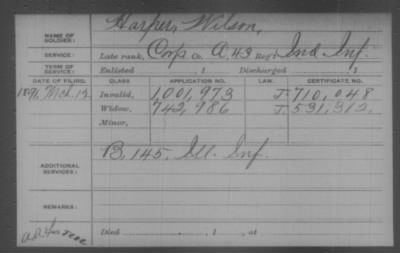 NAME OF SOLDIER: Harper, Wilson,
SERVICE: Late rank, Corp Co. A, 43 Reg't Ind. Inf.
TERM OF SERVICE: Enlisted , 1 Discharged , 1
DATE OF FILING. CLASS. APPLICATION NO. LAW. CERTIFICATE NO.
1891, Mch. 12 Invalid, 1,001,973 J. 710,048
Widow, 742,986 J. 531,312
Minor,
ADDITIONAL SERVICES: B, 145, Ill. Inf.
REMARKS:
Died , 1 , at